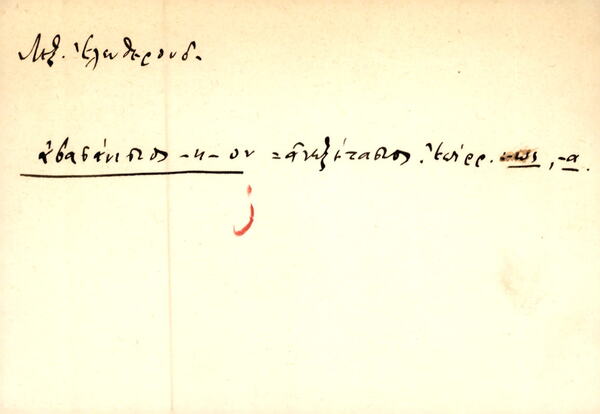 Λεξ. Ἐλευθερουδ.
ἀβασάνιστος -η -ον = ἀνεξέταστος. Ἐπίρρ. -ως, -α.